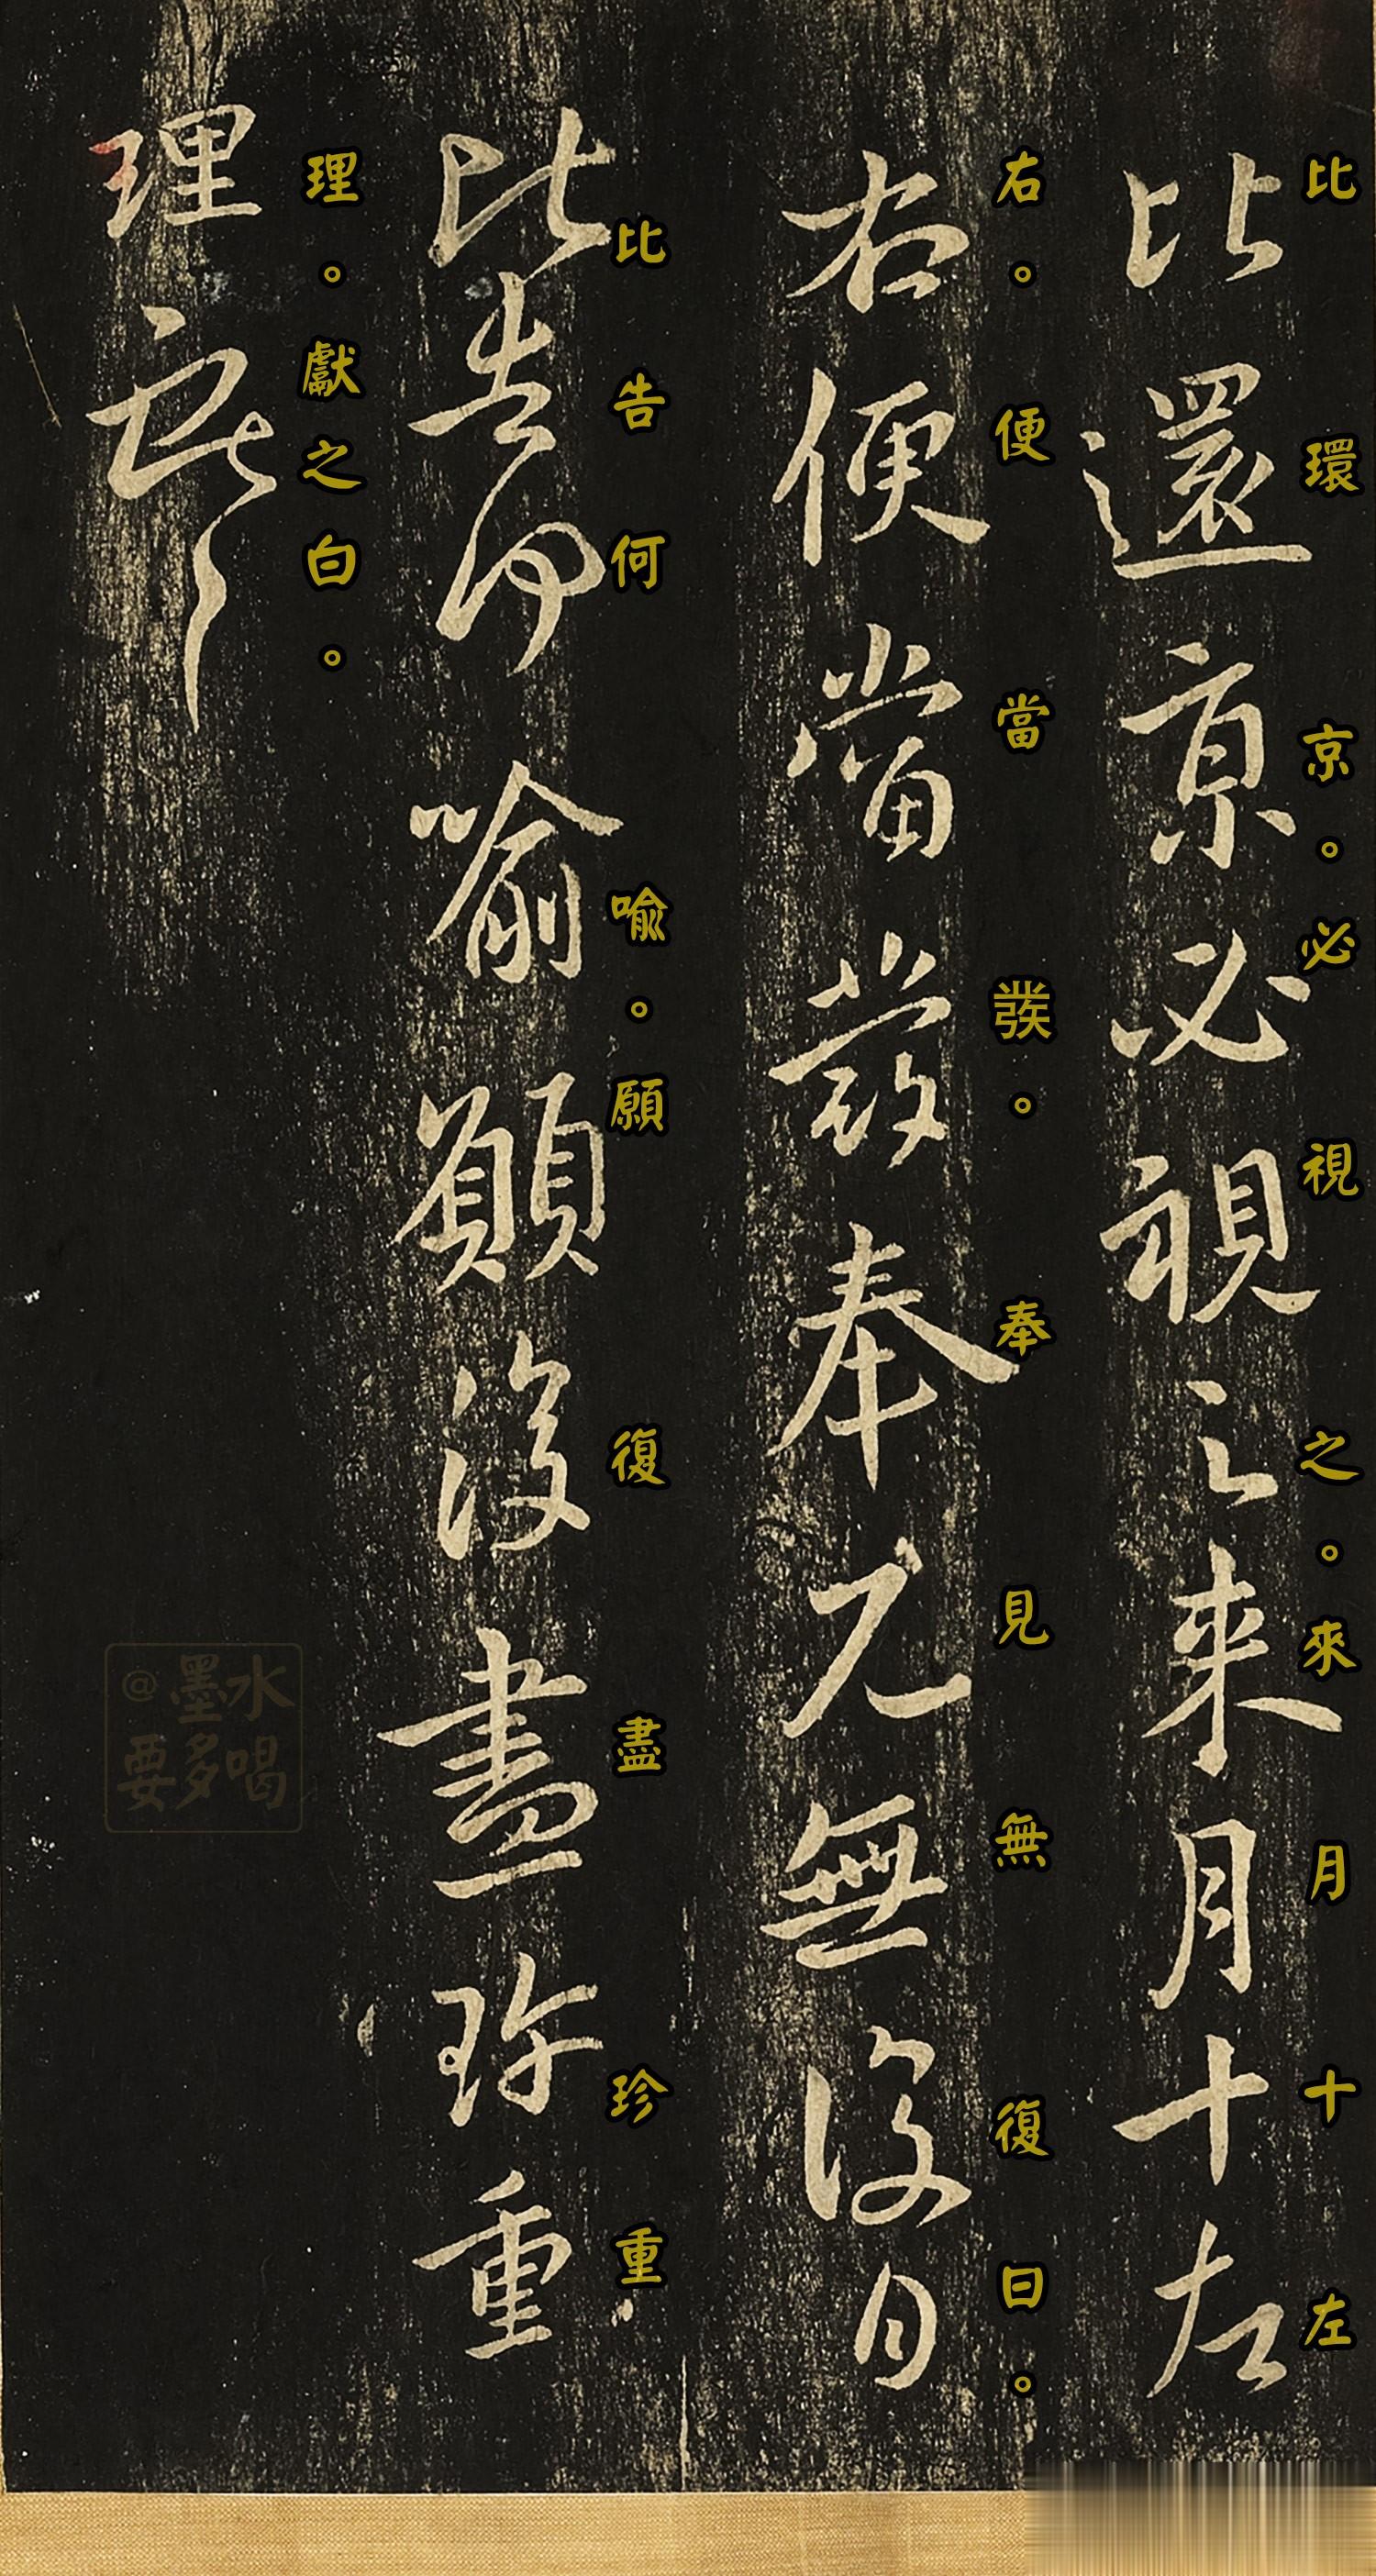 比環京。必視之。來月十左
比還京必視之來月十左
右。便當彂。奉見無復曰。
右便當發奉見無復日
比告何喻。願復盡珍重
比告何喻願復盡珍重
理。獻之白。
理
@墨水
要多喝